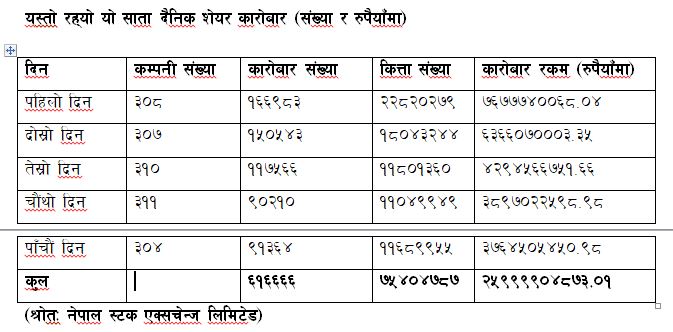 यस्तो रह्यो यो साता दैनिक शेयर कारोबार (संख्या र रुपैयाँमा)
दिन कम्पनी संख्या कारोबार संख्या कित्ता संख्या कारोबार रकम (रुपैयाँमा)
पहिलो दिन ३०८ १६६९८३ २२८२०२७९ ७६७७७४००६८.०४
दोस्रो दिन ३०७ १५०५४३ १८०४३२४४ ६३६६०७०००३.३५
तेस्रो दिन ३१० ११७५६६ ११८०१३६० ४२९४५६६७५१.६६
चौंथो दिन ३११ ९०२१० ११०४९९४९ ३८९७०२२५९८.९८
पाँचौं दिन ३०४ ९१३६४ ११६८९९५५ ३७६४५०५४५०.९८
कुल ६१६६६६ ७५४०४७८७ २५९९९९०४८७३.०१
(श्रोत: नेपाल स्टक एक्सचेन्ज लिमिटेड)